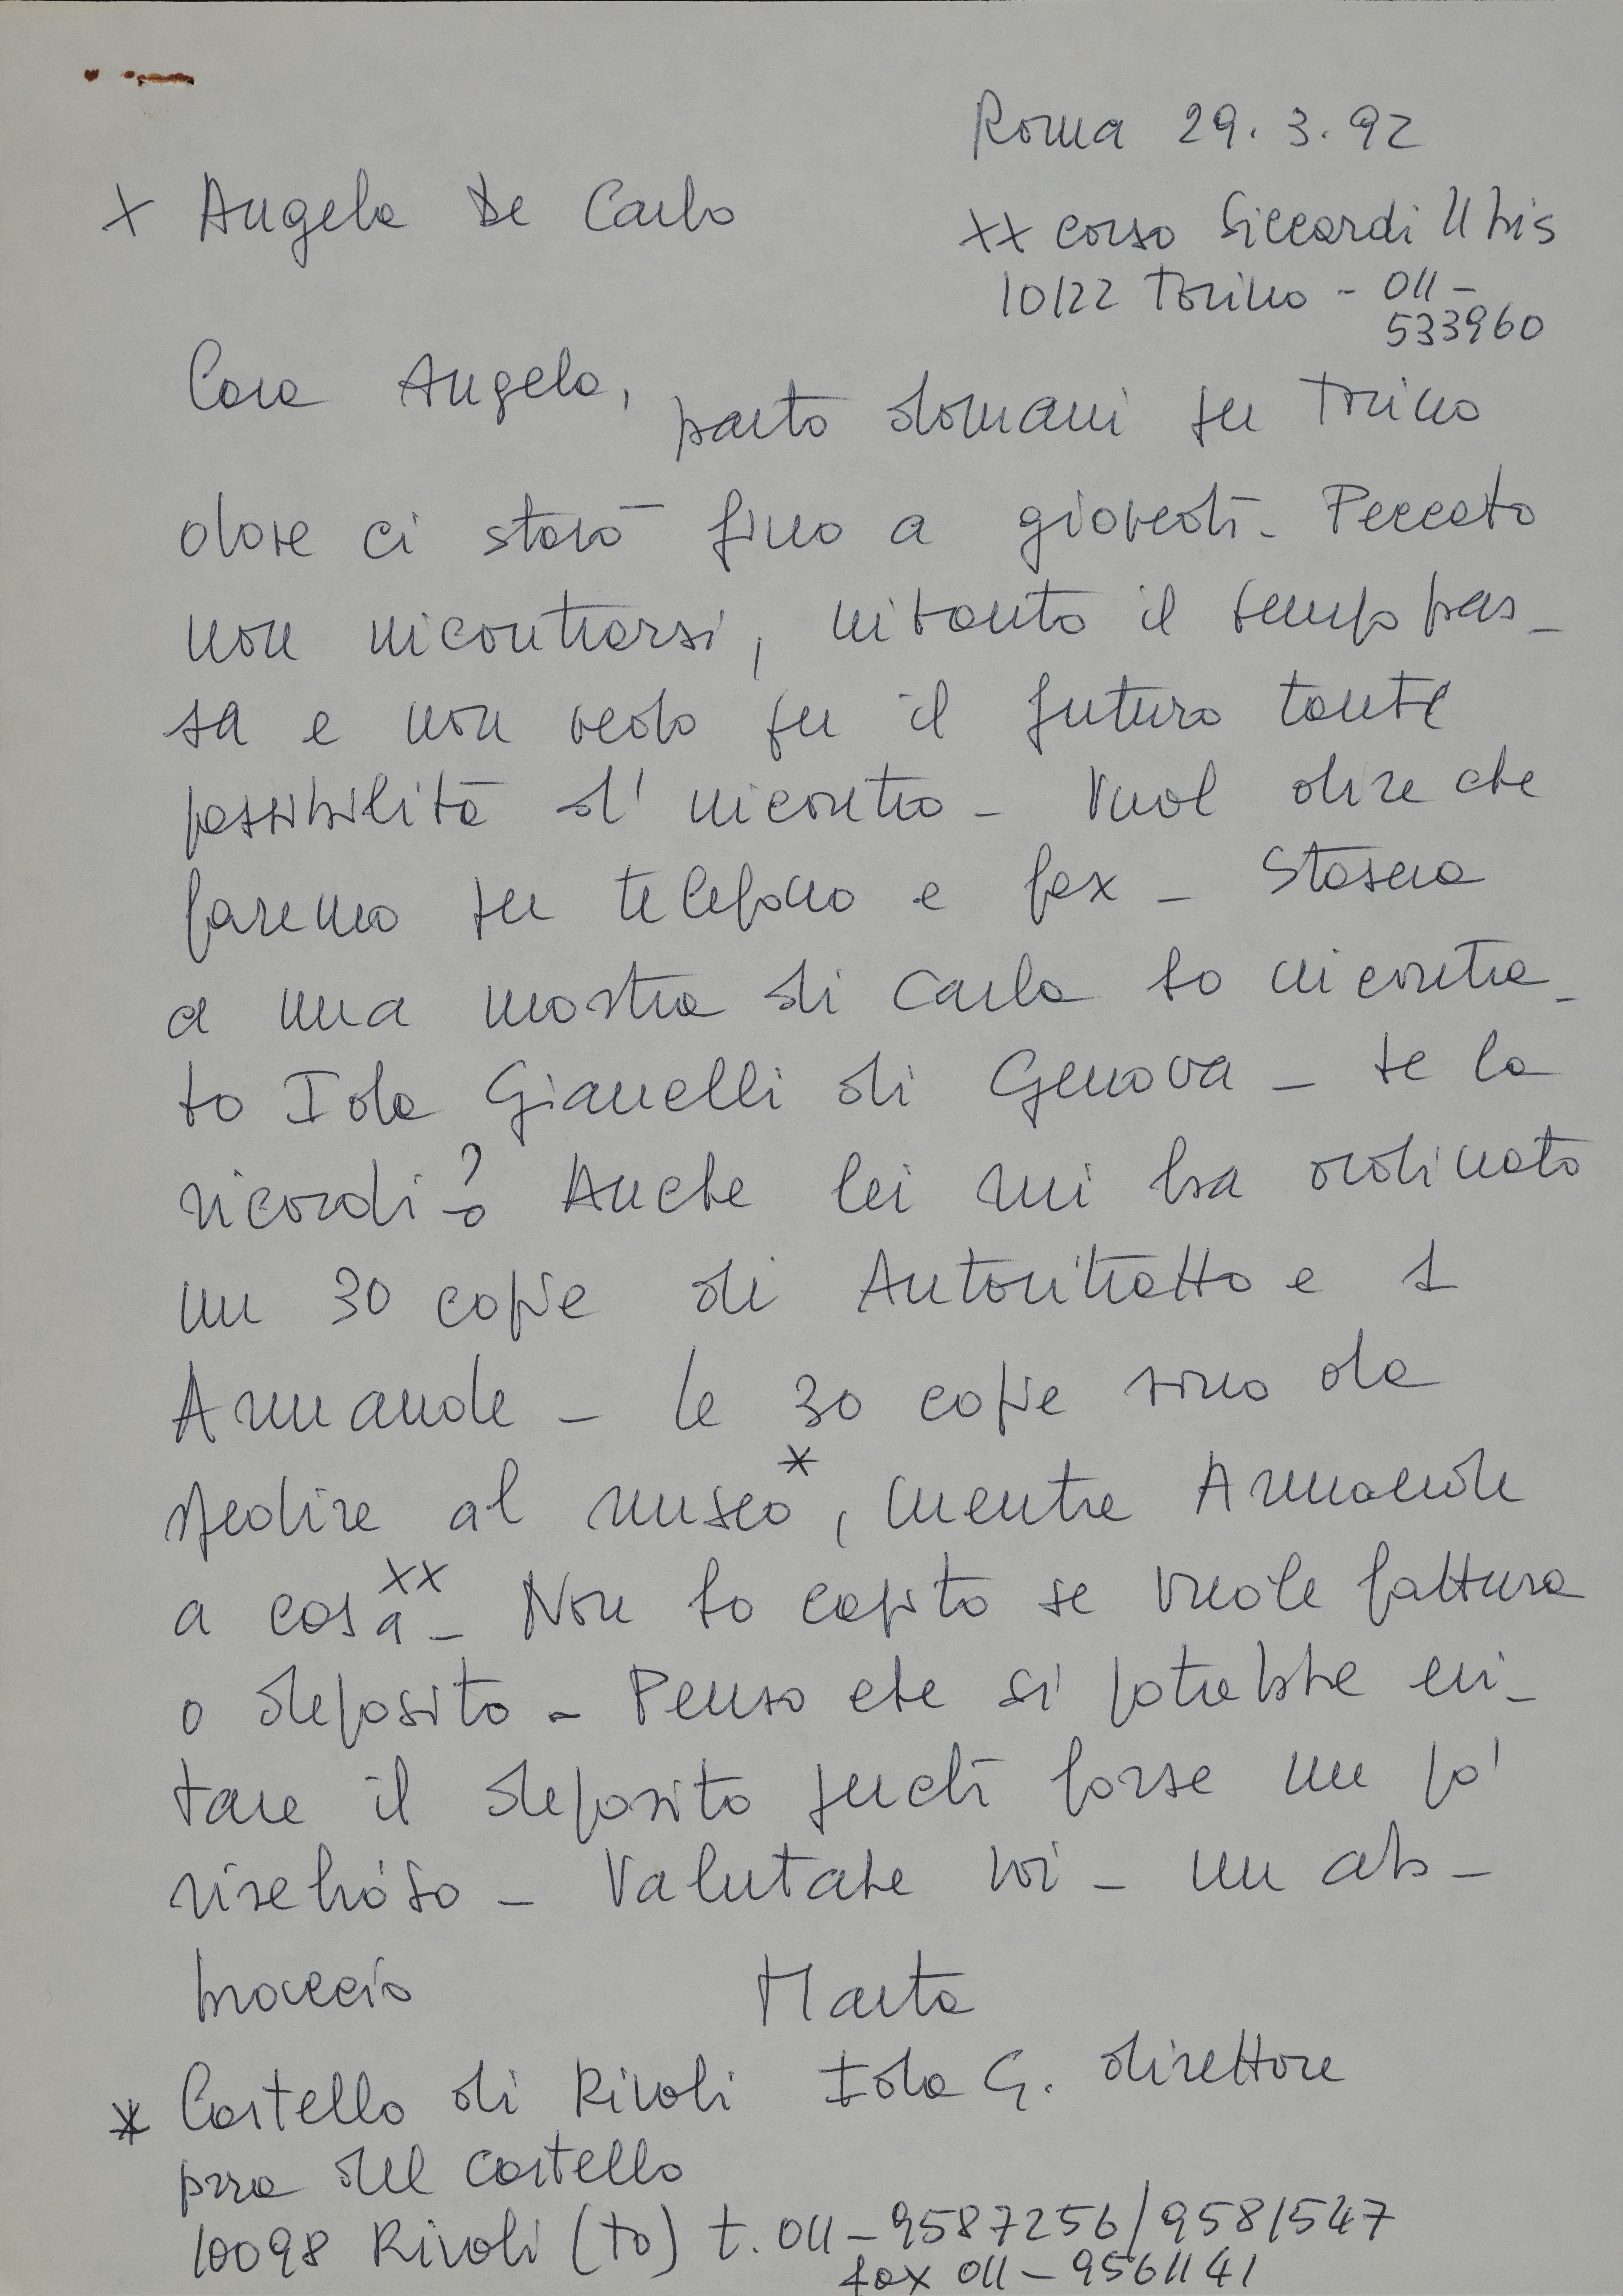 Roma 29.3.92
x Angela De Carlo
xx corso Siccardi 11 bis
10122 Torino - 011-
533960
Cara Angela, parto domani per Torino
dove ci starò fino a giovedì - Peccato
non incontrarsi, intanto il tempo pas-
sa e non vedo per il futuro tante
possibilità d'incontro - Vuol dire che
faremo per telefono e fax - Stasera
a una mostra di Carla ho incontra-
to Ida Gianelli di Genova - te la
ricordi? Anche lei mi ha ordinato
un 30 copie di Autoritratto e 1
Armande - le 30 copie sono da
spedire al museo*, mentre Armande
a casa xx - Non ho capito se vuole fattura
o deposito - Penso che si potrebbe evi-
tare il deposito perché forse un po'
rischioso - Valutate voi - un ab-
braccio Marta
* Castello di Rivoli Ida G. direttore
pzza del castello
10098 Rivoli (to) t. 011-9587256/9581547
fax 011-9561141